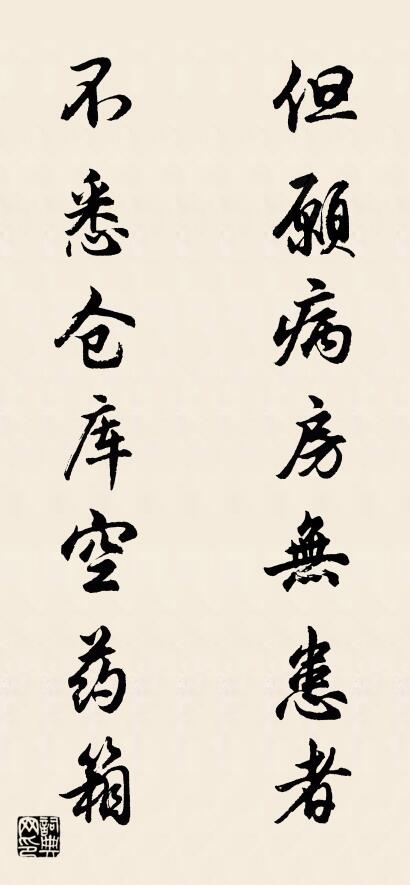 但願病房無患者
不悉仓库空药箱
詞典网印